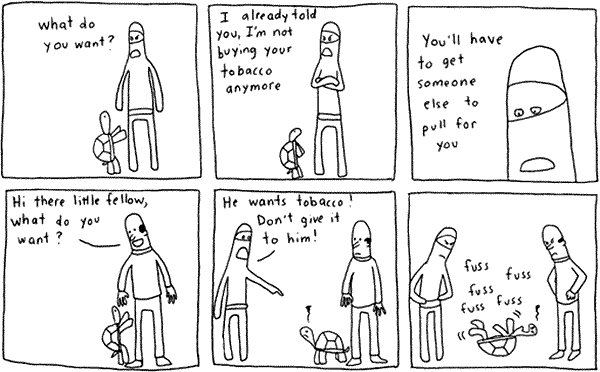 what do
you want?
I already told
you, I'm not
buying your
tobacco
anymore
You'll have
to get
someone
else to
pull for
you
Hi there little fellow,
what do you
want?
He wants tobacco!
Don't give it
to him!
fuss
fuss
fuss
fuss fuss